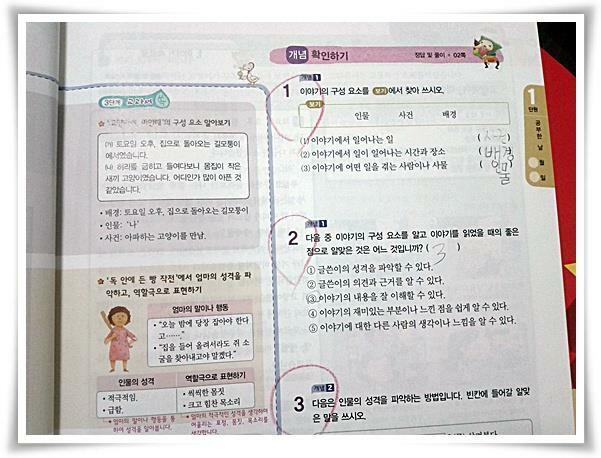 3단계 교과서 쏙
의 구성 요소 알아보기
㈎ 토요일 오후, 집으로 돌아오는 길모퉁이
에서였습니다.
㈏ 허리를 굽히고 들여다보니 몸집이 작은
새끼 고양이였습니다. 어디인가 많이 아픈 것
같았습니다.
• 배경: 토요일 오후, 집으로 돌아오는 길모퉁이
• 인물: '나'
• 사건: 아파하는 고양이를 만남.
'독 안에 든 빵 작전'에서 엄마의 성격을 파
악하고, 역할극으로 표현하기
엄마의 말이나 행동
• "오늘 밤에 당장 잡아야 한다
고……."
• "집을 들어 올려서라도 쥐 소
굴을 찾아내고야 말겠다."
인물의 성격 역할극으로 표현하기
• 적극적임. • 씩씩한 몸짓
• 급함. • 크고 힘찬 목소리
엄마의 말이나 행동을 통
하여 성격을 알아봅니다.
엄마의 적극적인 성격을 생각하며
어울리는 표정, 몸짓, 목소리를
생각합니다.
개념 확인하기 정답 및 풀이 • 02쪽
개념 1
1 이야기의 구성 요소를 보기 에서 찾아 쓰시오.
보기
인물 사건 배경
(1) 이야기에서 일어나는 일 ( 사건
(2) 이야기에서 일이 일어나는 시간과 장소 ( 배경
(3) 이야기에서 어떤 일을 겪는 사람이나 사물 ( 인물
개념 1
2 다음 중 이야기의 구성 요소를 알고 이야기를 읽었을 때의 좋은
점으로 알맞은 것은 어느 것입니까? ( 3 )
① 글쓴이의 성격을 파악할 수 있다.
② 글쓴이의 의견과 근거를 알 수 있다.
③ 이야기의 내용을 잘 이해할 수 있다.
④ 이야기의 재미있는 부분이나 느낀 점을 쉽게 알 수 있다.
⑤ 이야기에 대한 다른 사람의 생각이나 느낌을 알 수 있다.
개념 2
3 다음은 인물의 성격을 파악하는 방법입니다. 빈칸에 들어갈 알맞
은 말을 쓰시오.
1
단원
공부한 날
월
일